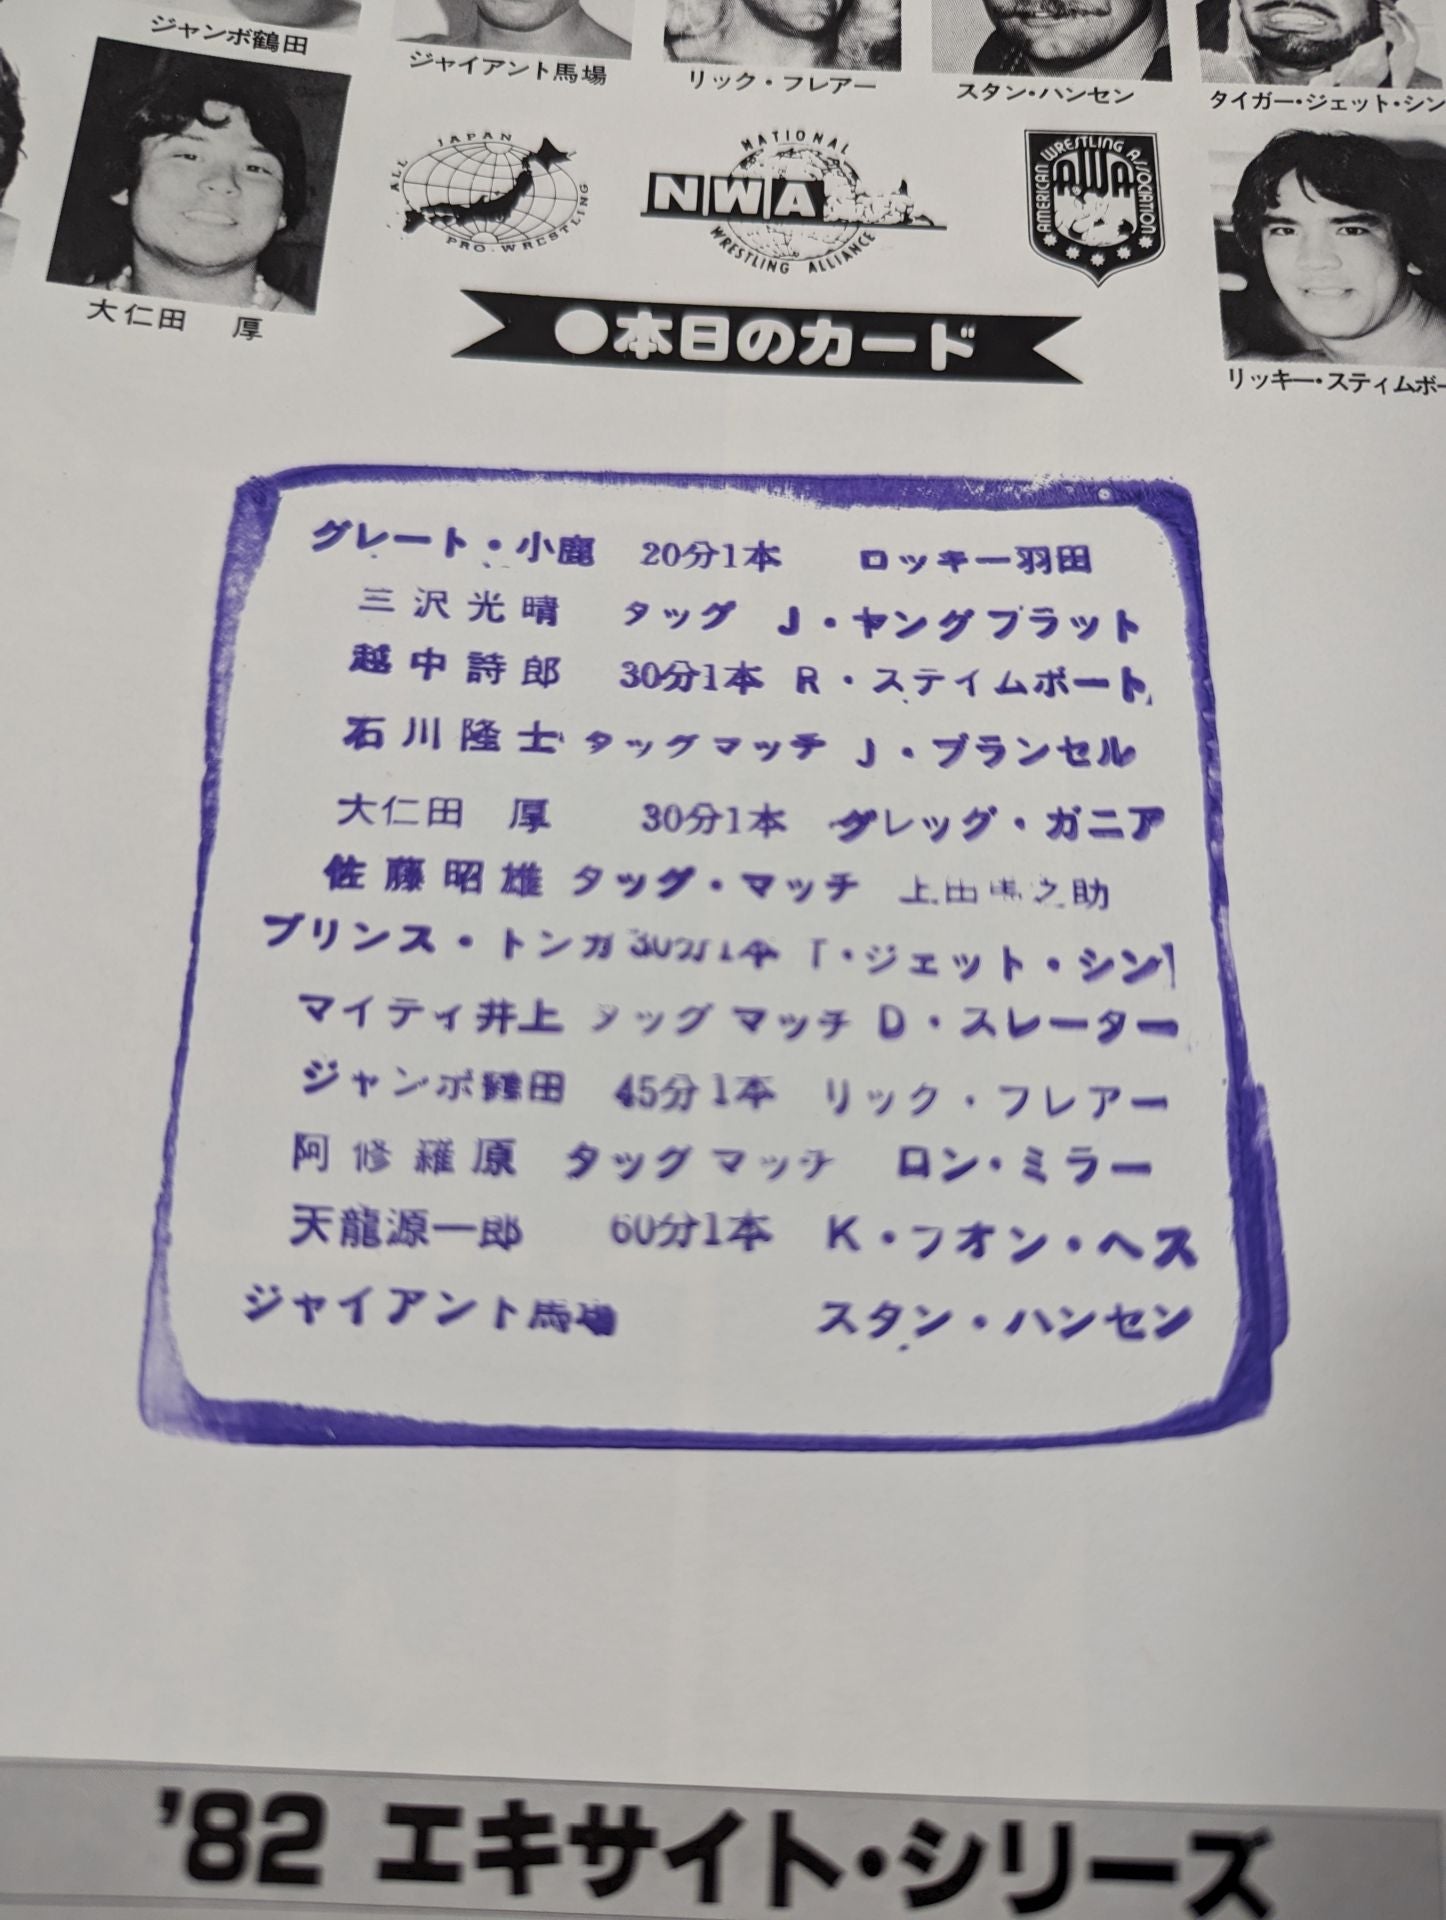 ジャンボ鶴田
ジャイアント馬場
リック・フレアー
スタン・ハンセン
タイガー・ジェット・シン
大仁田 厚
ALL JAPAN
PRO-WRESTLING
NATIONAL
NWA
WRESTLING ALLIANCE
AMERICAN WRESTLING ASSOCIATION
AWA
リッキー・スティムボー
●本日のカード
グレート・小鹿 20分1本 ロッキー羽田
三沢光晴 タッグ J・ヤングブラット
越中詩郎 30分1本 R・スティムボート
石川隆士 タッグマッチ J・ブランセル
大仁田 厚 30分1本 グレッグ・ガニア
佐藤昭雄 タッグ・マッチ 上田馬之助
プリンス・トンガ 30分1本 T・ジェット・シン
マイティ井上 タッグマッチ D・スレーター
ジャンボ鶴田 45分1本 リック・フレアー
阿修羅原 タッグマッチ ロン・ミラー
天龍源一郎 60分1本 K・フオン・ヘス
ジャイアント馬場 スタン・ハンセン
'82 エキサイト・シリーズ